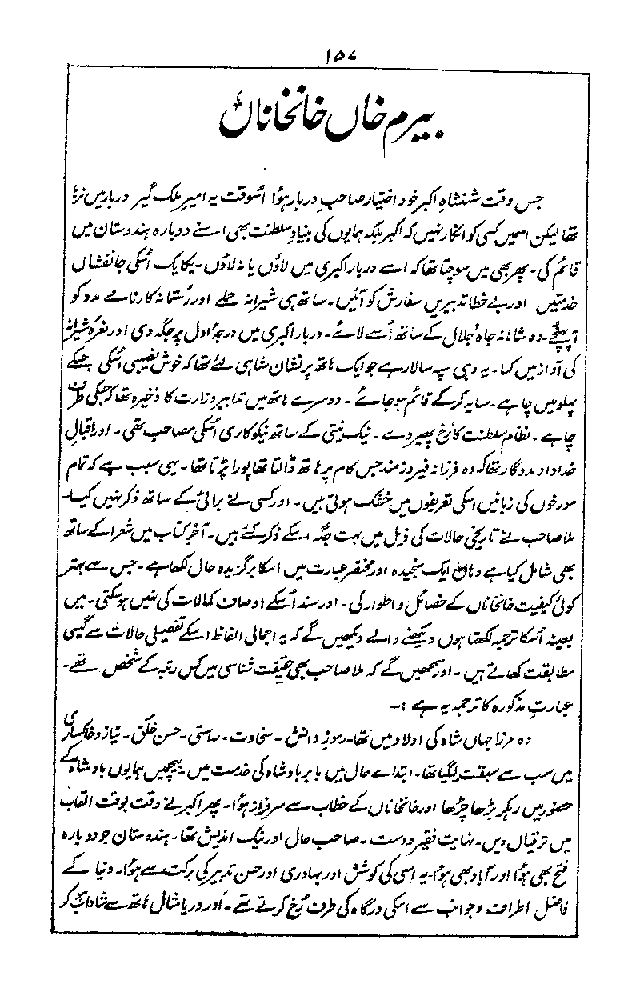 ۱۵۷
بیرم خاں خانخاناں
جس وقت شہنشاہ اکبر خود اختیار صاحب دربار ہوا اُسوقت یہ امیر ملک گیر دربار میں نرہا
تھا لیکن اسمیں کسی کو انکار نہیں کہ اکبر بلکہ ہمایوں کی بنیاد سلطنت بھی اسنے دوبارہ ہندوستان میں
قائم کی۔ پھر بھی میں سوچتا تھا کہ اسے دربار اکبری میں لاؤں یا نہ لاؤں۔ یکایک اُسکی جانفشاں
خدمتیں اور بے خطا تدبیریں سفارش کو آئیں۔ ساتھ ہی شیرانہ حملے اور رستمانہ کارنامے مدد کو
آ پہنچے۔ وہ شاہانہ جاہ و جلال کے ساتھ اُسے لائے۔ دربار اکبری میں درجۂ اول پر جگہ دی اور نعرۂ شیرانہ
کی آواز میں کہا۔ یہ وہی سپہ سالار ہے جو ایک ہاتھ پر نشان شاہی لئے تھا کہ خوش نصیبی اُسکی جسکے
پہلو میں چاہے۔ سایہ کر کے قائم ہو جائے۔ دوسرے ہاتھ میں تدابیر وزارت کا ذخیرہ تھا کہ جسکی طرف
چاہے۔ نظام سلطنت کا رخ پھیر دے۔ نیک نیتی کے ساتھ نیکو کاری اُسکی مصاحب تھی۔ اور اقبال
خداداد مددگار تھا کہ وہ فرزانہ فیروز مند جس کام پر ہاتھ ڈالتا تھا پورا پڑتا تھا۔ یہی سبب ہے کہ تمام
مورخوں کی زبانیں اسکی تعریفوں میں خشک ہوتی ہیں۔ اور کسی نے برائی کے ساتھ ذکر نہیں کیا۔
ملا صاحب نے تاریخی حالات کی ذیل میں بہت جگہ اسکے ذکر کئے ہیں۔ آخر کتاب میں شعرا کے ساتھ
بھی شامل کیا ہے وہاں ایک سنجیدہ اور مختصر عبارت میں اسکا برگزیدہ حال لکھا ہے۔ جس سے بہتر
کوئی کیفیت خانخاناں کے خصائل و اطوار کی۔ اور سند اُسکے اوصاف و کمالات کی نہیں ہو سکتی۔ میں
بعینہ اُسکا ترجمہ لکھتا ہوں دیکھنے والے دیکھیں گے کہ یہ اجمالی الفاظ اسکے تفصیلی حالات سے کیسی
مطابقت کھاتے ہیں۔ اور سمجھیں گے کہ ملا صاحب بھی حقیقت شناسی میں کس رتبہ کے شخص تھے۔
عبارت مذکورہ کا ترجمہ یہ ہے :۔
وہ مرزا جہاں شاہ کی اولاد میں تھا۔ رموز دانش۔ سخاوت۔ راستی۔ حسن خلق۔ نیاز و خاکساری
میں سب سے سبقت لیگیا تھا۔ ابتدائے حال میں بابر بادشاہ کی خدمت میں پھر بیچ میں ہمایوں بادشاہ کے
حضور میں رہکر بڑھا چڑھا اور خانخاناں کے خطاب سے سرفراز ہوا۔ پھر اکبر نے وقت بوقت القاب
میں ترقیاں دیں۔ نہایت فقیر دوست۔ صاحب حال اور نیک اندیش تھا۔ ہندوستان جو دوبارہ
فتح بھی ہوا اور آباد بھی ہوا۔ یہ اسی کی کوشش اور بہادری اور حسن تدبیر کی برکت سے ہوا۔ دنیا کے
فاضل اطراف و جوانب سے اسکی درگاہ کی طرف رخ کرتے تھے۔ اور دریا مثال ہاتھ سے شاداب ہو کر